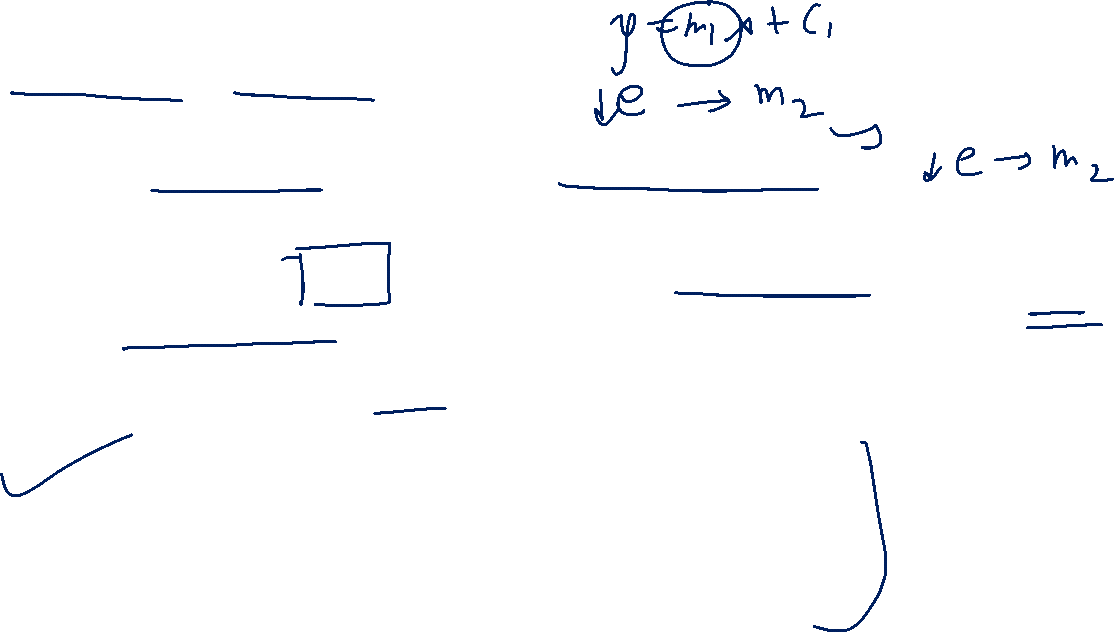 y = m₁x + c₁
↓e → m₂
↓e → m₂